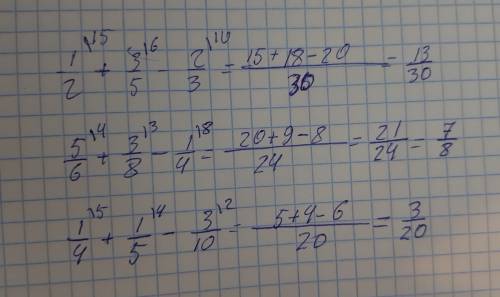 1/2 \15 + 3/5 \6 - 2/3 \10 = (15+18-20)/30 = 13/30
5/6 \4 + 3/8 \3 - 1/4 \8 = (20+9-8)/24 = 21/24 = 7/8
1/4 \5 + 1/5 \4 - 3/10 \2 = (5+4-6)/20 = 3/20